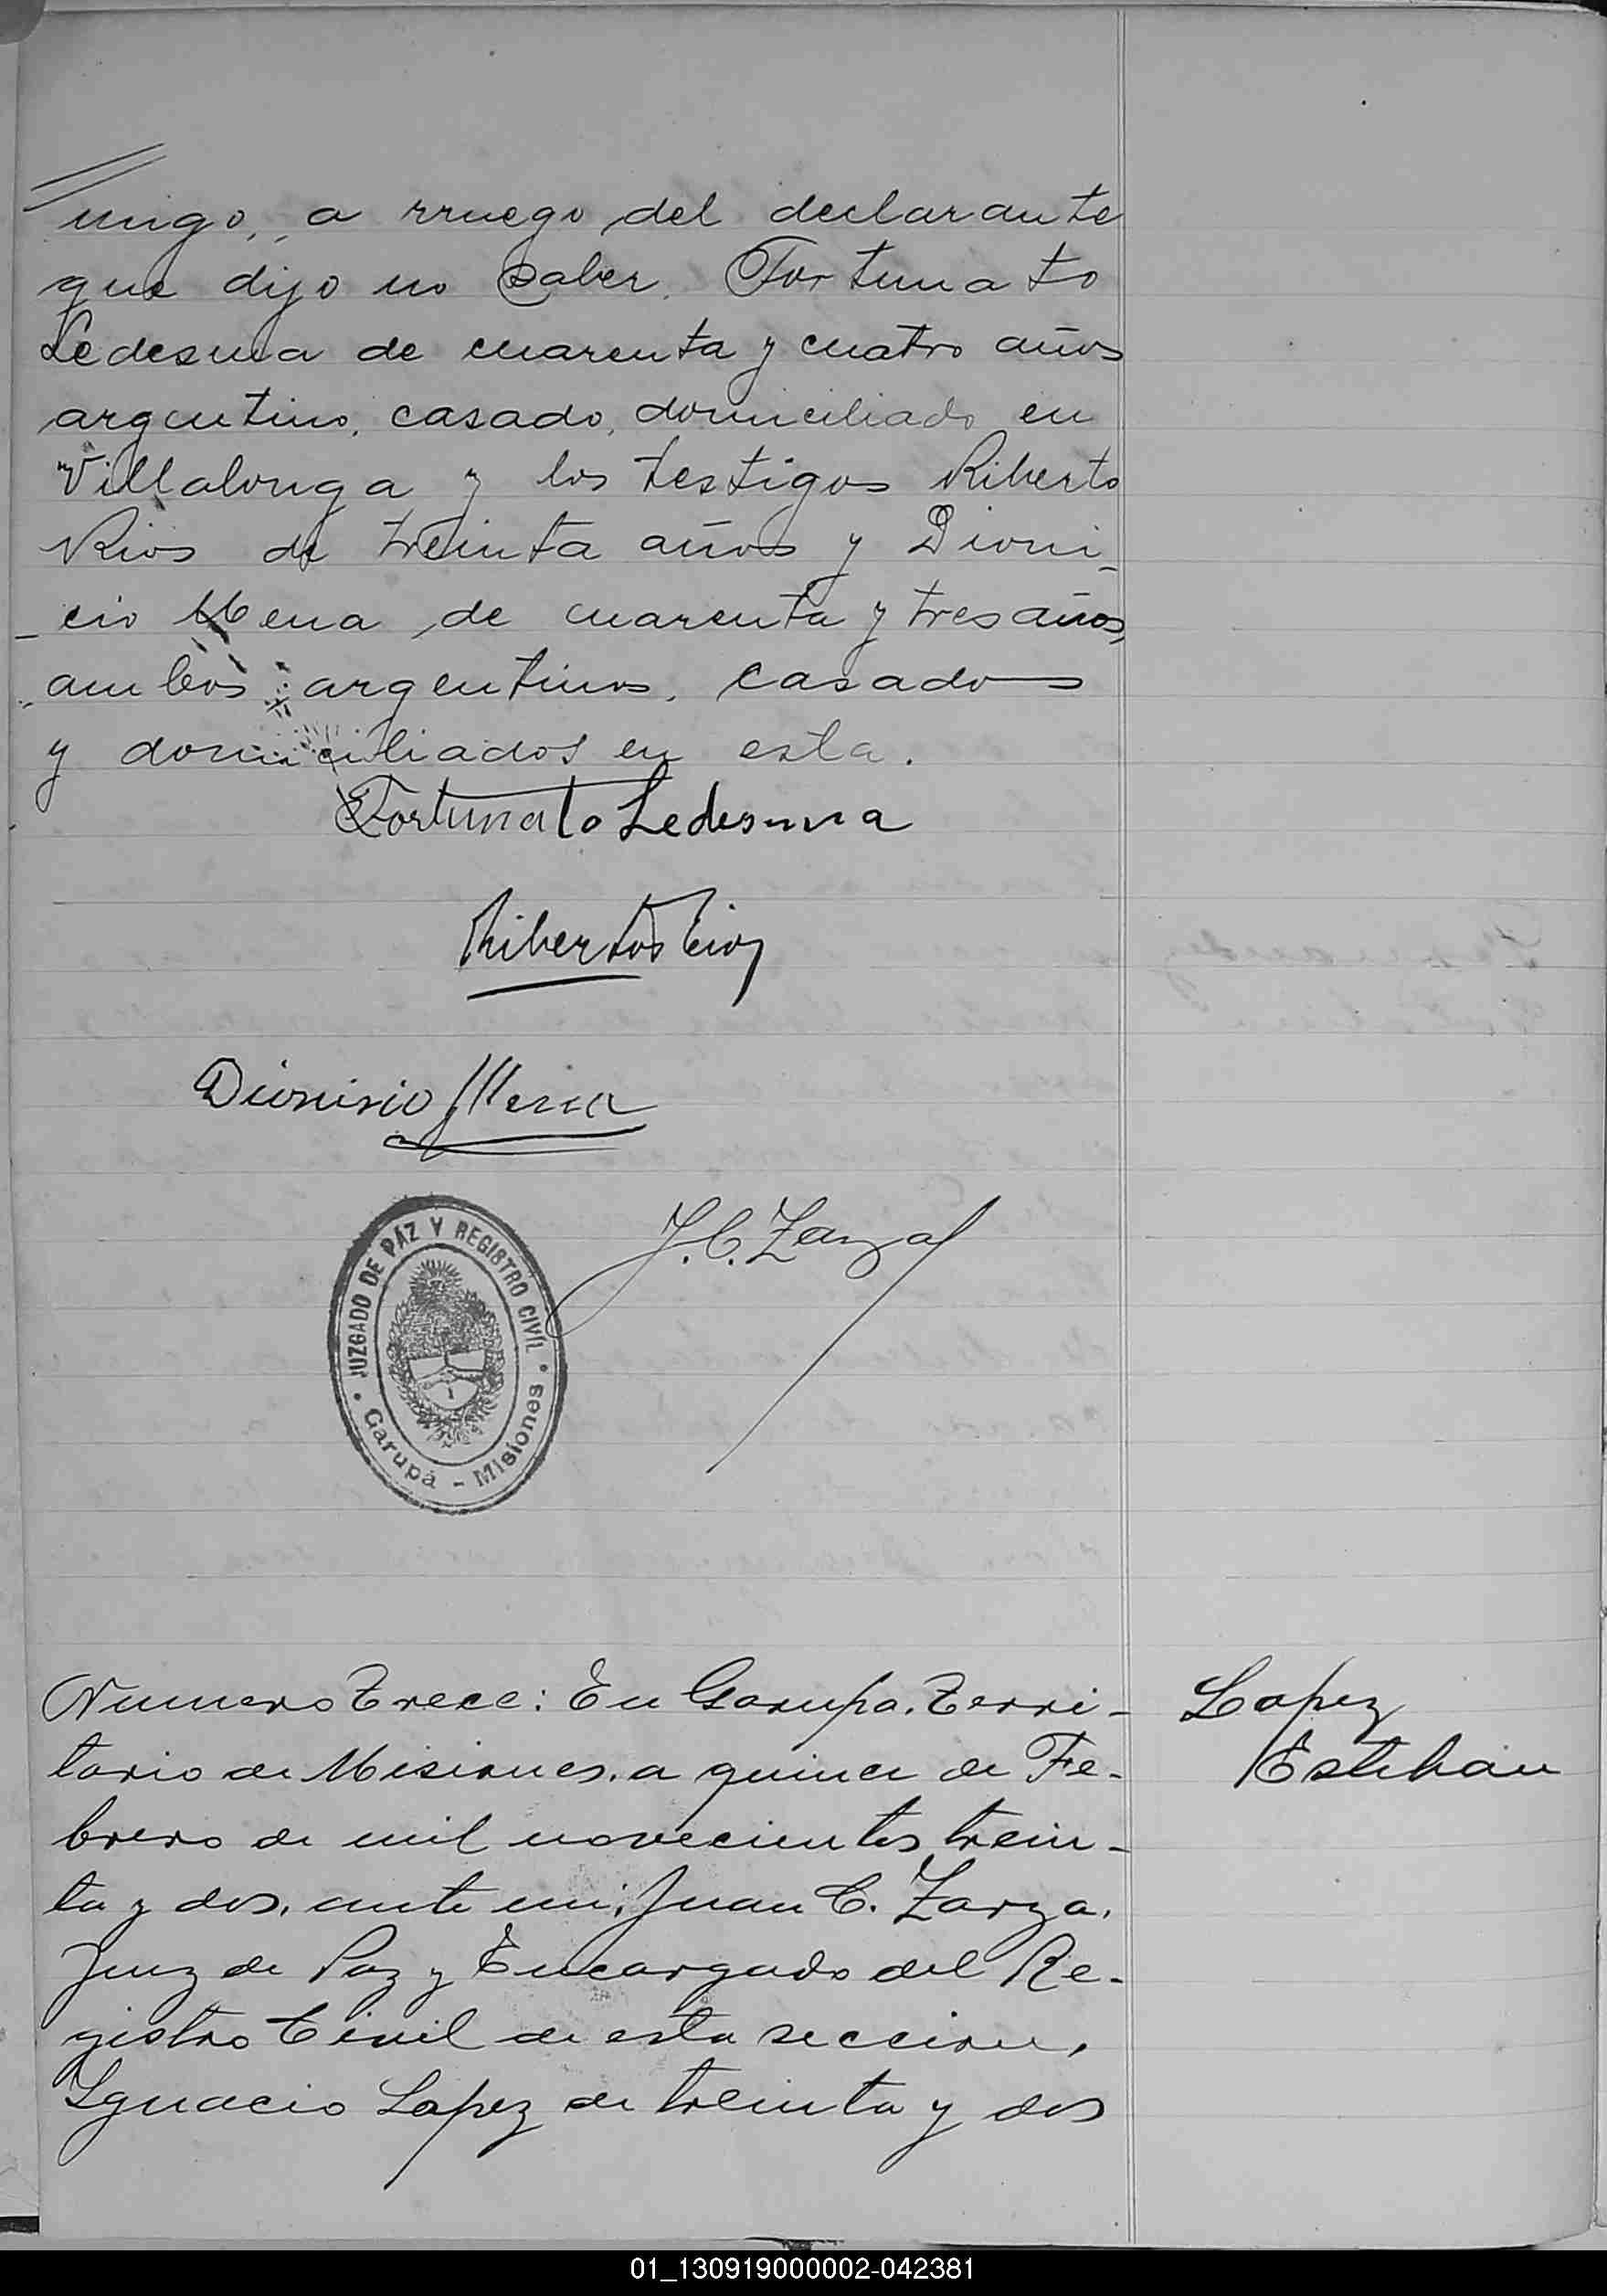 migo, a rruego del declarante
que dijo no saber. Fortunato
Ledesma de cuarenta y cuatro años
argentino, casado, domiciliado en
Villalonga y los testigos Riberto
Rios de treinta años y Dioni-
-cio Mena de cuarenta y tres años,
ambos argentinos, casados
y domiciliados en esta.
Fortunato Ledesma
Riberto Rios
Dionisio Mena
J. C. Zarza
JUZGADO DE PAZ Y REGISTRO CIVIL
Garupá - Misiones
Numero Trece: En Garupa. Terri-
torio de Misiones. a quince de Fe-
brero de mil novecientos trein-
ta y dos, ante mi, Juan C. Zarza,
Juez de Paz y Encargado del Re-
gistro Civil de esta seccion,
Ignacio Lopez de treinta y dos
Lopez
Esteban
01_130919000002-042381